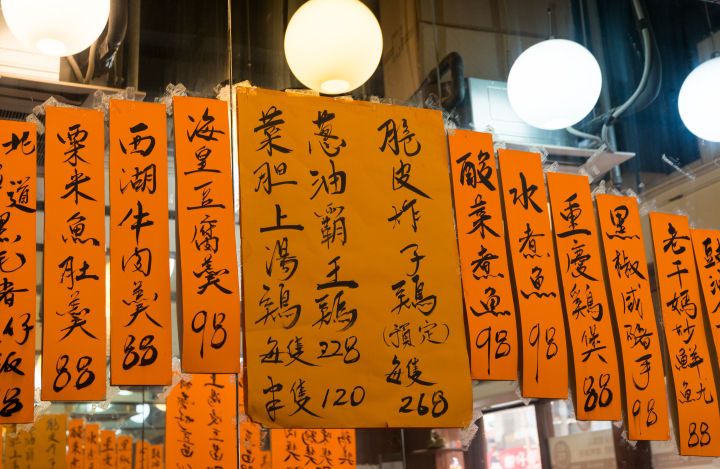 粟米魚肚羹 88
西湖牛肉羹 88
海皇豆腐羹 98
脆皮炸子鷄(預定)每隻 268
葱油霸王鷄
菜胆上湯鷄
每隻 228
半隻 120
酸菜煮魚 98
水煮魚 98
重慶鷄煲 88
黑椒咸豬手 98
老干媽炒鮮魷 88